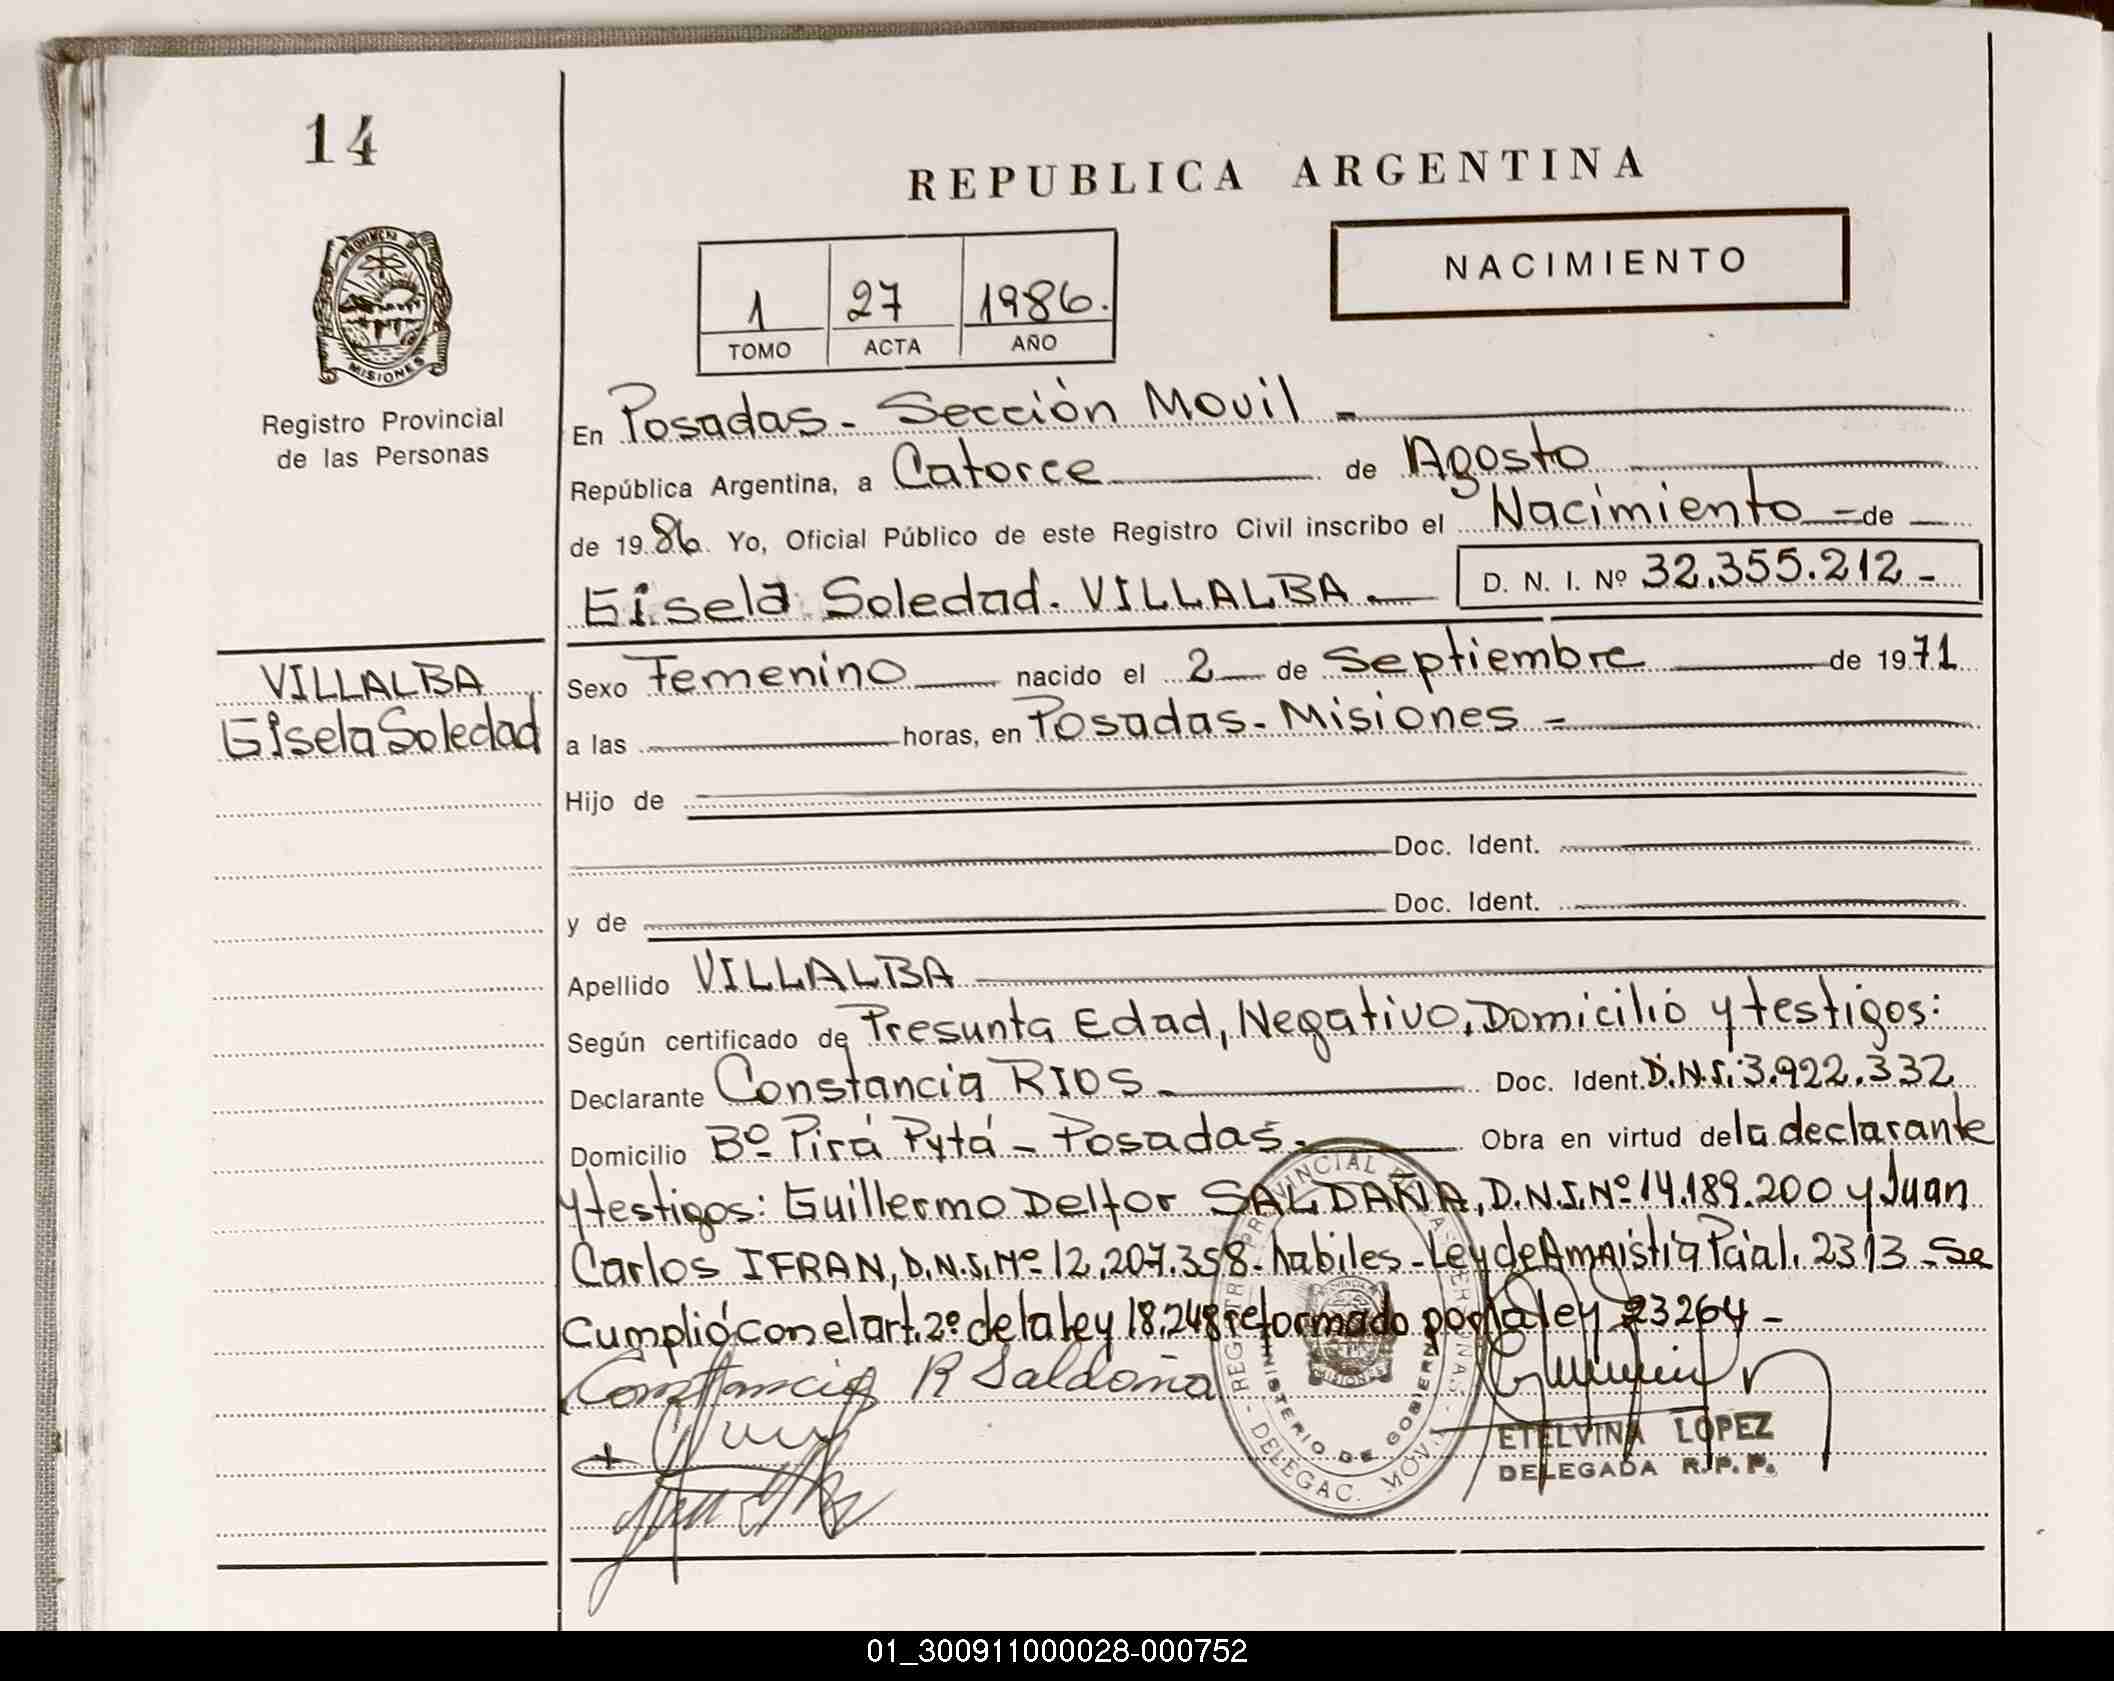 14
REPUBLICA ARGENTINA
PROVINCIA DE
MISIONES
Registro Provincial
de las Personas
1 27 1986.
TOMO ACTA AÑO
NACIMIENTO
En Posadas - Sección Movil -
República Argentina, a Catorce de Agosto
de 1986. Yo, Oficial Público de este Registro Civil inscribo el Nacimiento - de
Gisela Soledad. VILLALBA. D. N. I. Nº 32.355.212 -
VILLALBA,
Gisela Soledad
Sexo Femenino nacido el 2 de Septiembre de 1971
a las horas, en Posadas - Misiones -
Hijo de
Doc. Ident.
y de Doc. Ident.
Apellido VILLALBA
Según certificado de Presunta Edad, Negativo, Domicilio y testigos:
Declarante Constancia RIOS - Doc. Ident. D.N.I. 3.922.332
Domicilio Bº Pirá Pytá - Posadas. Obra en virtud de la declarante
y testigos: Guillermo Delfor SALDAÑA, D.N.I. Nº 14.189.200 y Juan
Carlos IFRAN, D.N.I. Nº 12.207.358. habiles - Ley de Amnistia Pcial. 2313 - Se
Cumplió con el art. 2º de la ley 18.248 reformado por la ley 23264 -
Constancia R Saldaña
REGISTRO PROVINCIAL DE LAS PERSONAS
MINISTERIO DE GOBIERNO
DELEGAC. MOVIL
MISIONES
ETELVINA LOPEZ
DELEGADA R.P.P.
01_300911000028-000752